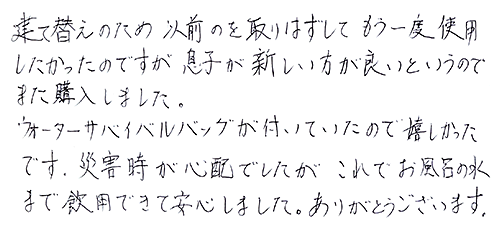 建て替えのため 以前のを取りはずして もう一度使用
したかったのですが 息子が新しい方が良いというので
また購入しました。
ウォーターサバイバルバッグが付いていたので嬉しかった
です. 災害時が心配でしたが これでお風呂の水
まで飲用できて安心しました。ありがとうございます.